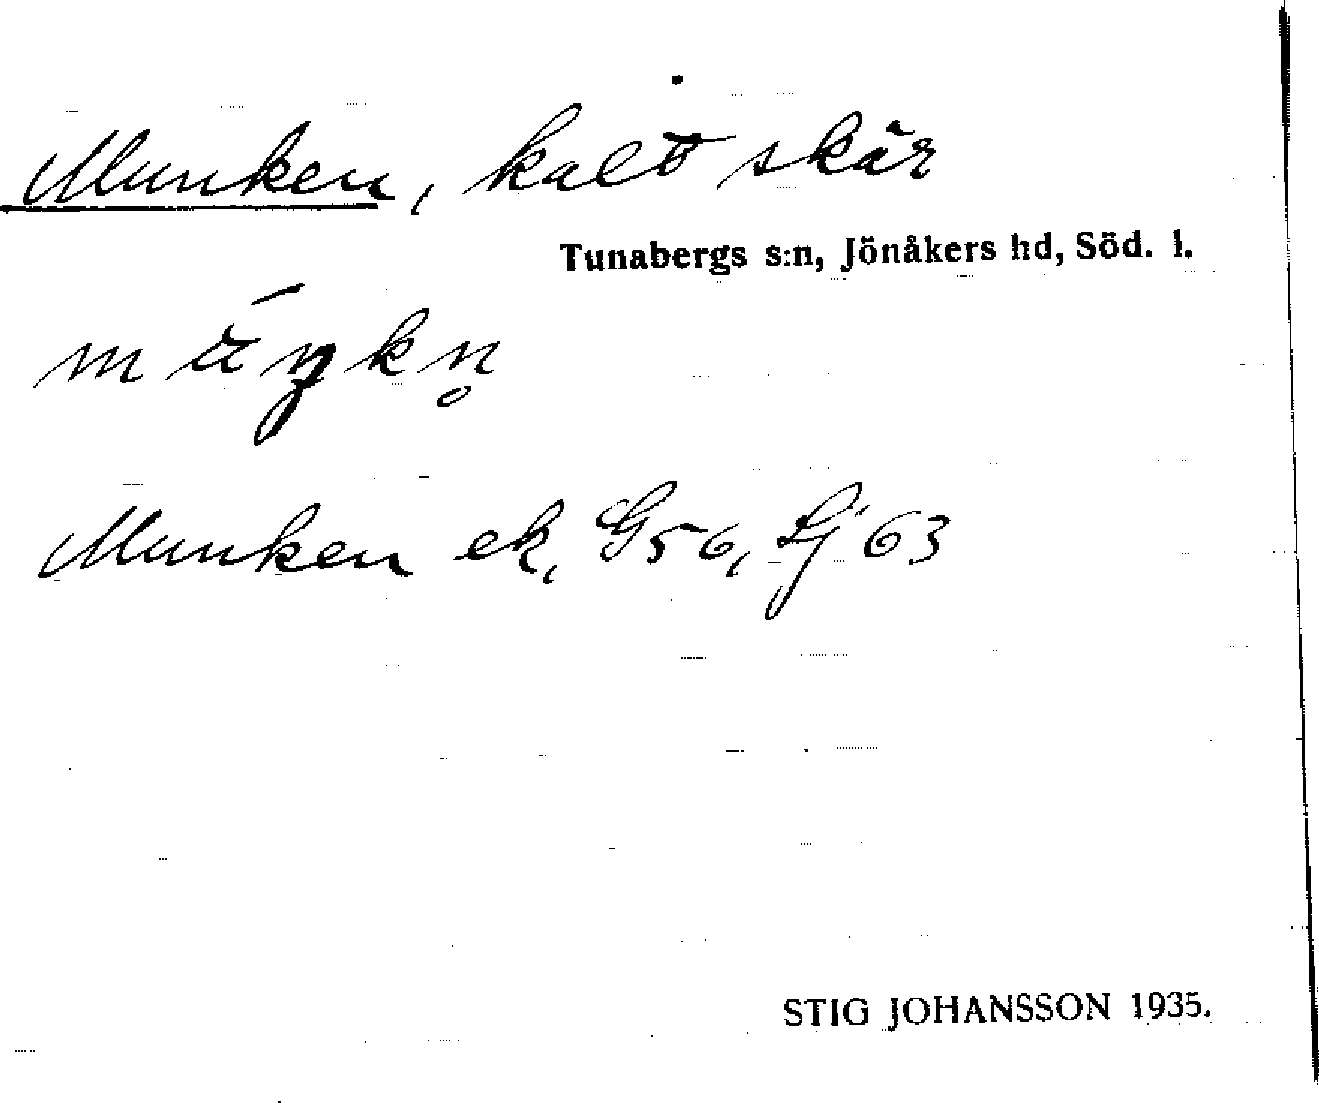 Munken, kalt skär
Tunabergs s:n, Jönåkers hd, Söd. l.
múŋkn̥
Munken ek, G56, Lj 63
STIG JOHANSSON 1935.